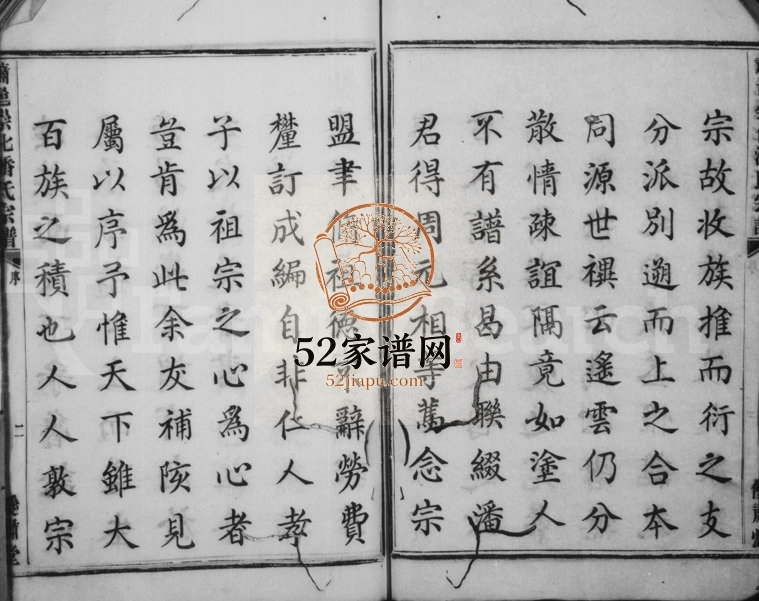 宗故收族推而衍之支
分派別遡而上之合本
同源世禩云遙雲仍分
散情疎誼隔竟如塗人
不有譜系曷由聯綴潘
君得周元相等篤念宗
盟聿脩祖德不辭勞費
釐訂成編自非仁人孝
子以祖宗之心為心者
豈肯為此余友補陔見
屬以序予惟天下雖大
百族之積也人人敦宗
潘氏宗譜
序
二
52家谱网
52jiapu.com